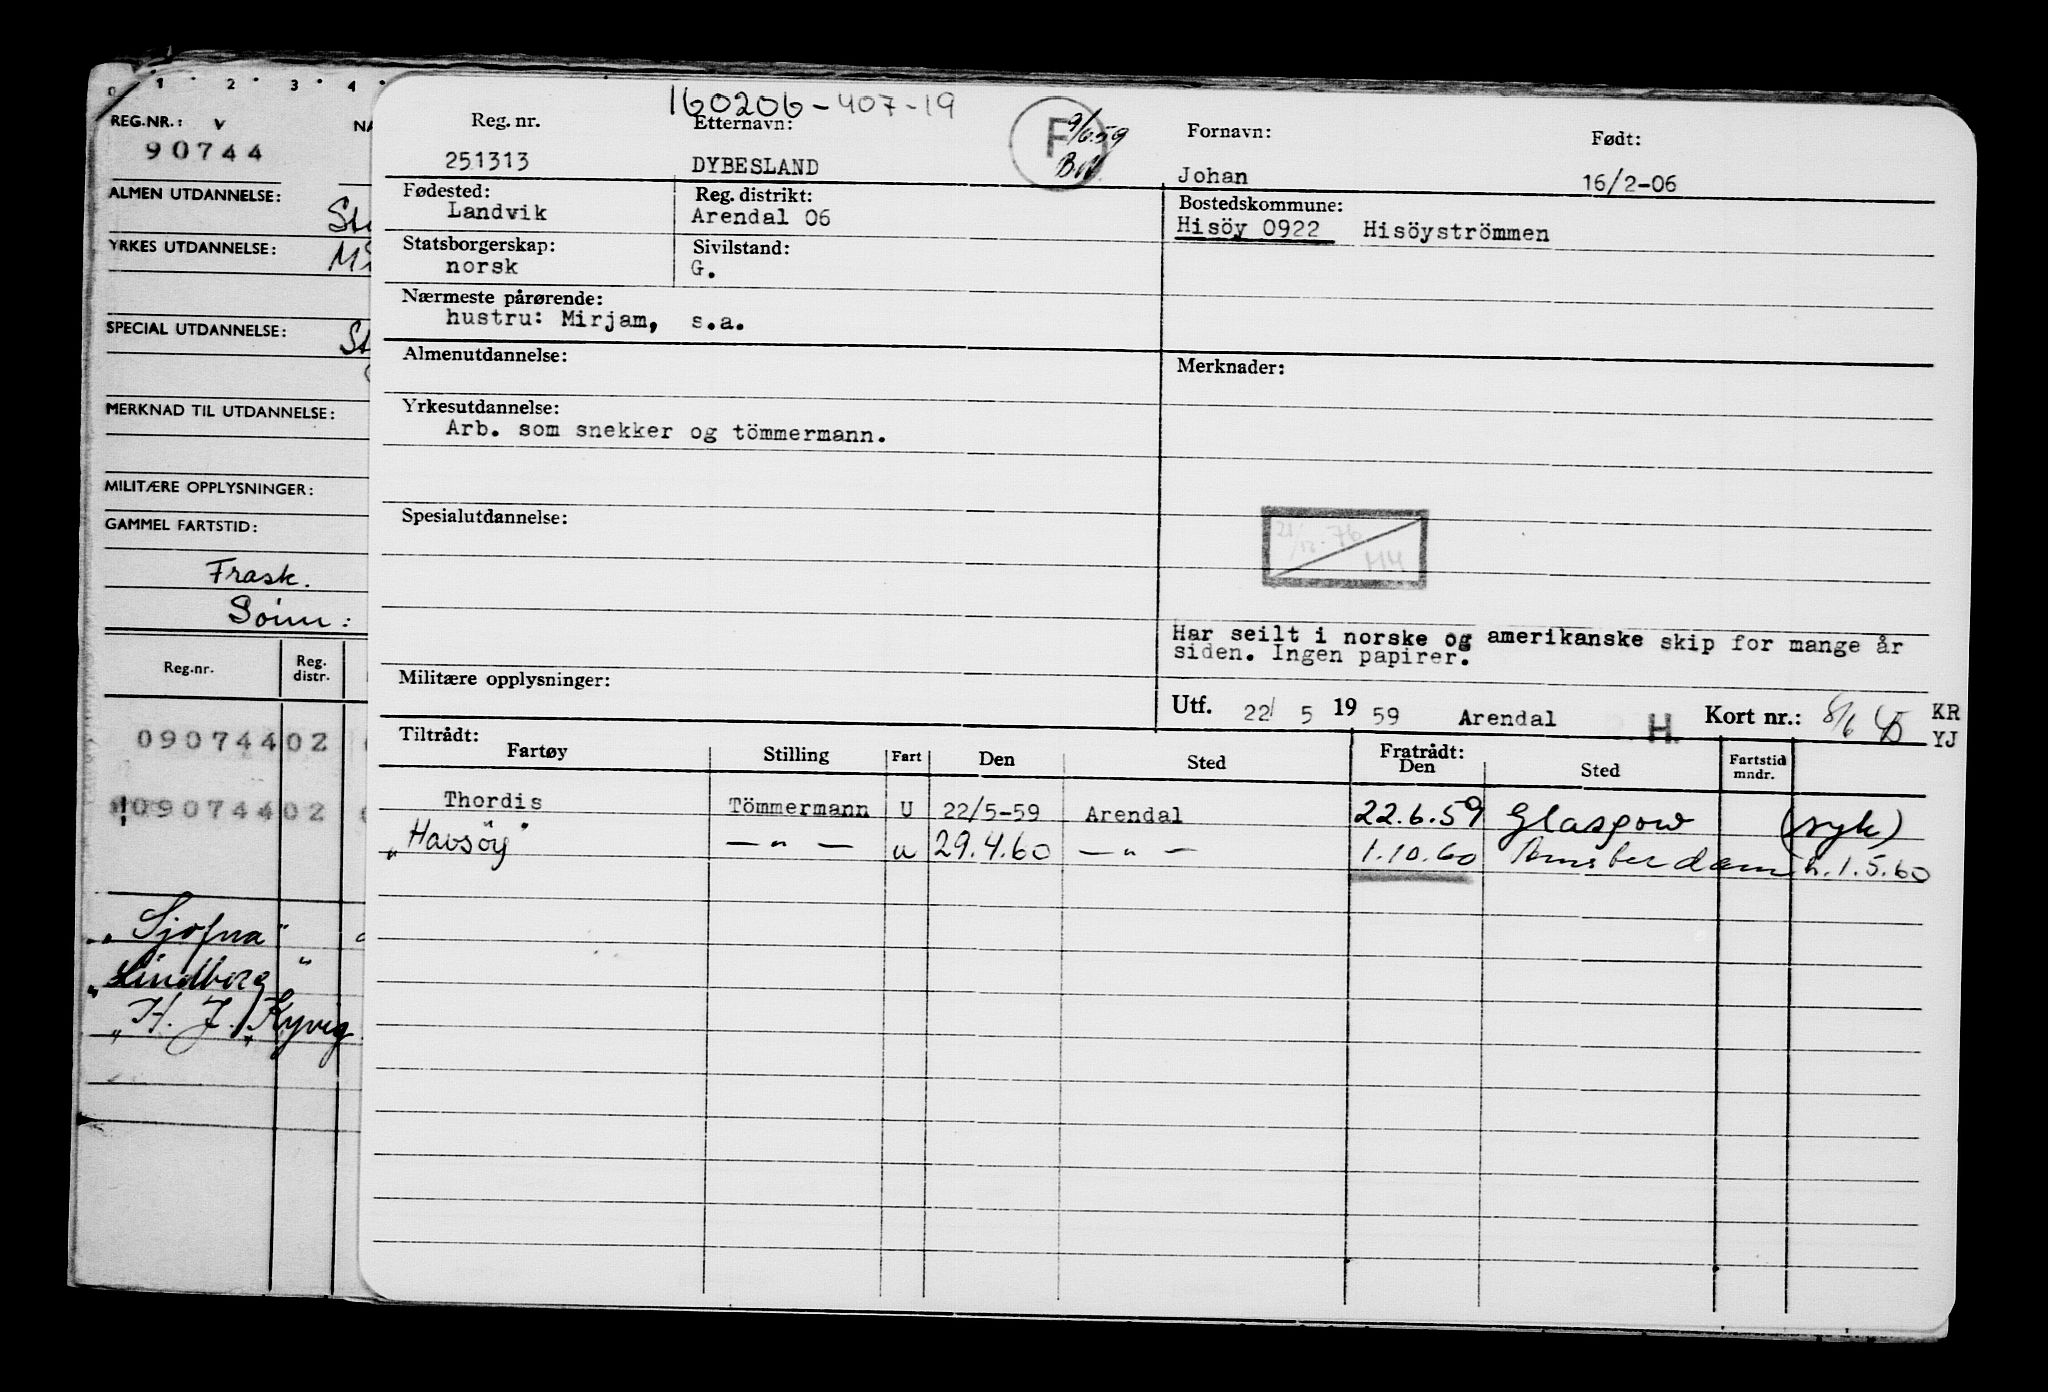 0 1 2 3 4
REG.NR.: V NA
90744
ALMEN UTDANNELSE:
YRKES UTDANNELSE:
SPECIAL UTDANNELSE:
MERKNAD TIL UTDANNELSE:
MILITÆRE OPPLYSNINGER:
GAMMEL FARTSTID:
Frask.
Reg.nr. Reg. distr.
09074402
09074402
"Sjofna"
"Lindborg"
"H. J. Kyvig
160206-407-19
Reg. nr. Etternavn: F 9/6.59 Fornavn: Født:
251313 DYBESLAND Johan 16/2-06
Fødested: Reg. distrikt: Bostedskommune:
Landvik Arendal 06 Hisöy 0922 Hisöyströmmen
Statsborgerskap: Sivilstand:
norsk G.
Nærmeste pårørende:
hustru: Mirjam, s.a.
Almenutdannelse: Merknader:
Yrkesutdannelse:
Arb. som snekker og tömmermann.
Spesialutdannelse:
Har seilt i norske og amerikanske skip for mange år
siden. Ingen papirer.
Militære opplysninger:
Utf. 22/ 5 19 59 Arendal H. Kort nr.: 8/6 KR
YJ
Tiltrådt: Fratrådt:
Fartøy Stilling Fart Den Sted Den Sted Fartstid mndr.
Thordis Tömmermann U 22/5-59 Arendal 22.6.59 Glasgow (syk)
"Havsöy" — " — u 29.4.60 — " — 1.10.60 Amsterdam h.1.5.60